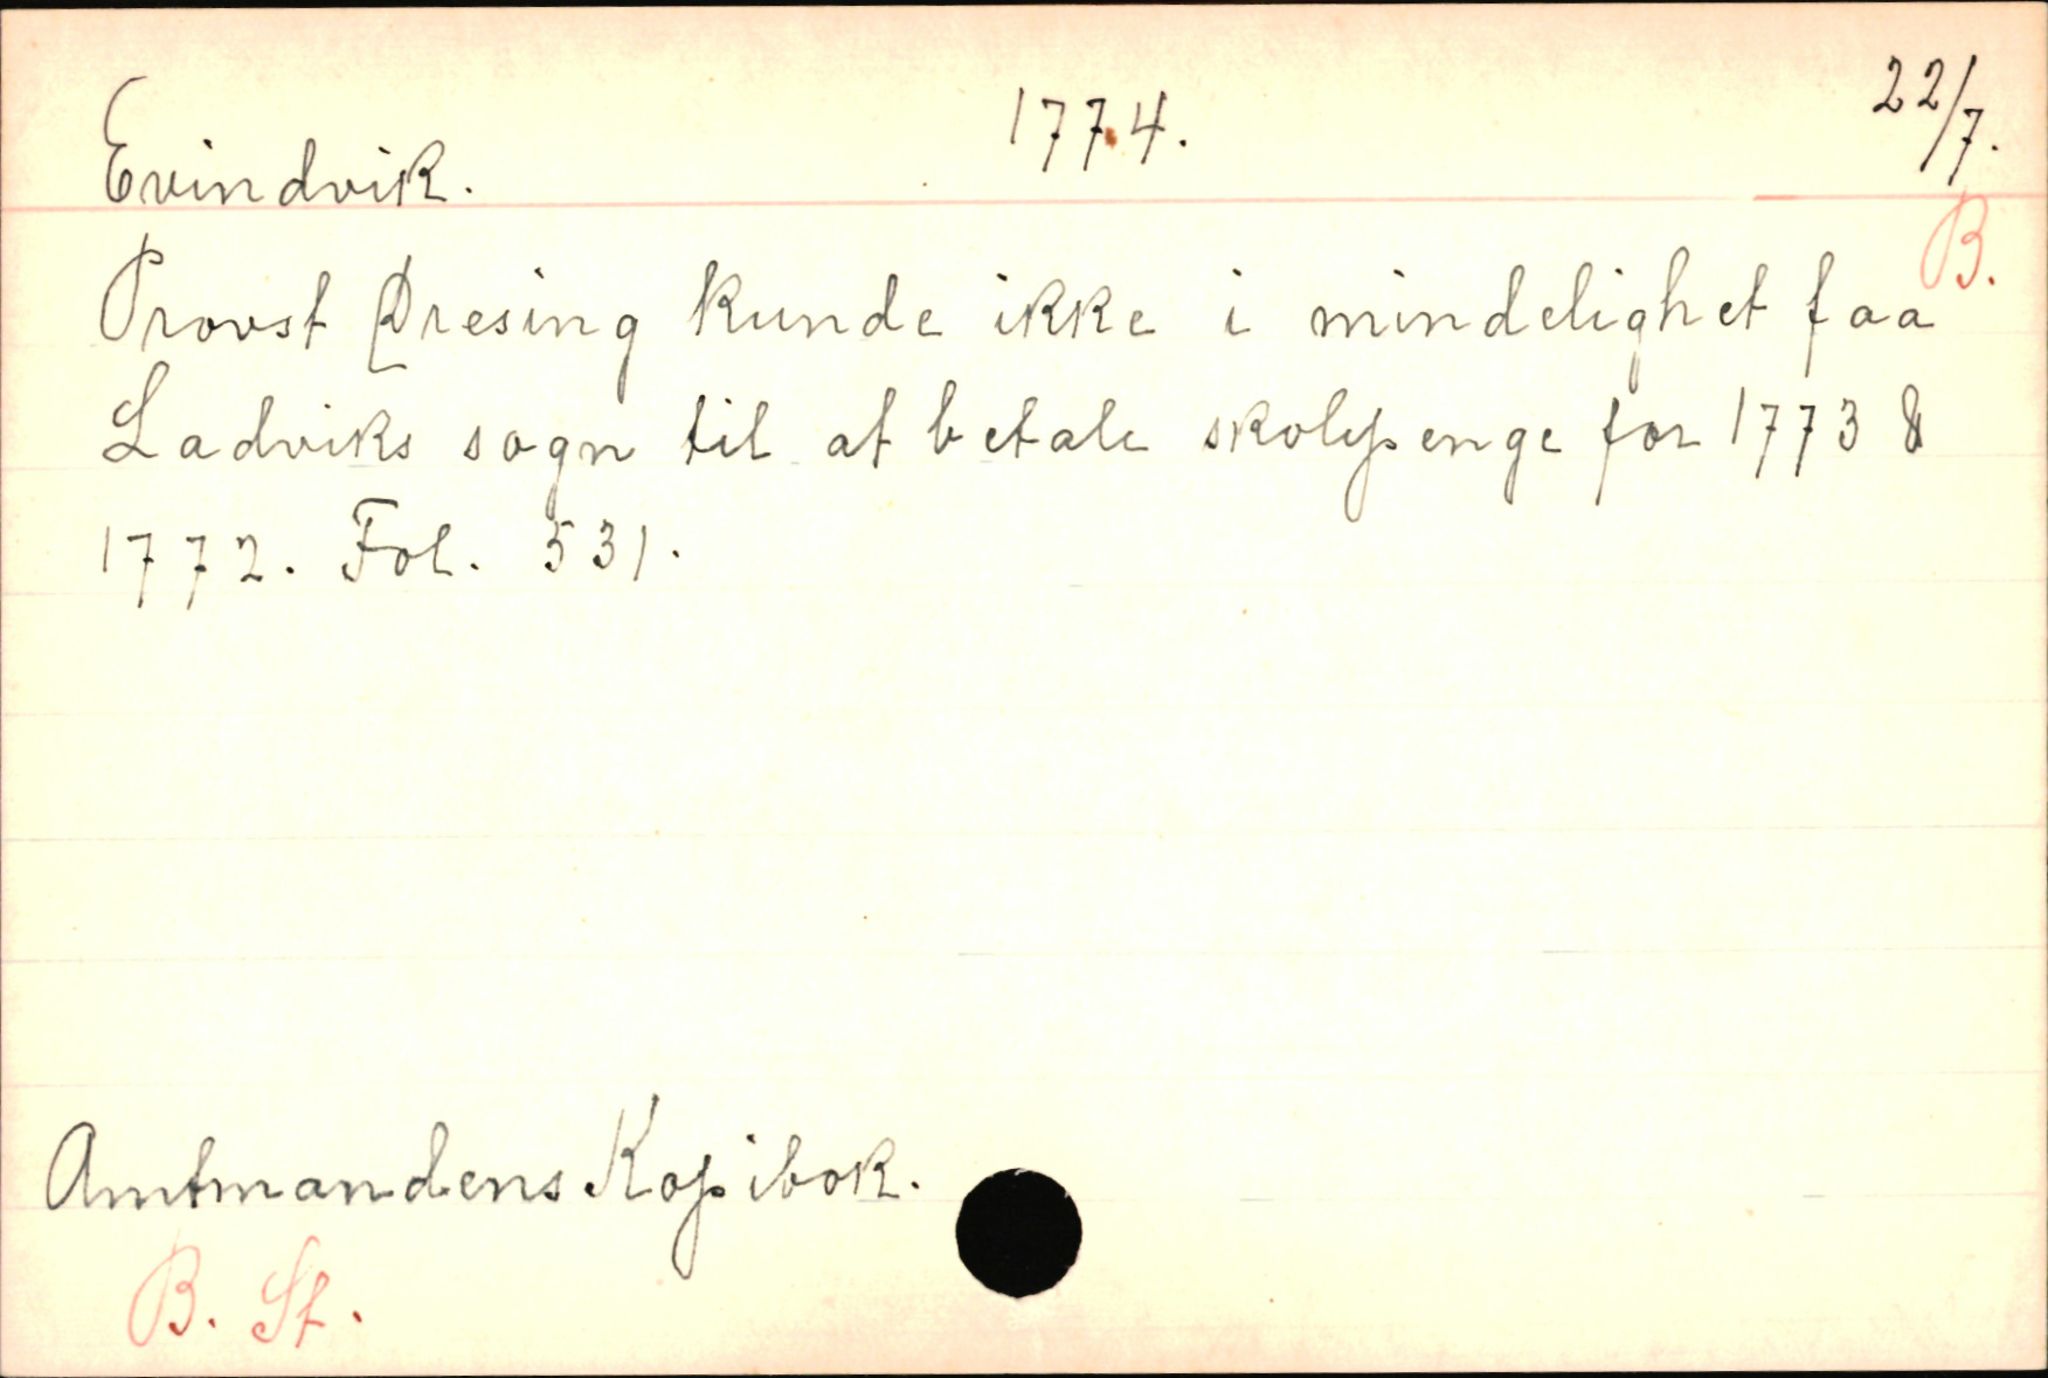 Evindvik. 1774. 22/7.
B.
Provst Dresing kunde ikke i mindelighet faa
Ladviks sogn til at betale skolepenge for 1773 &
1772. Fol. 531.
Amtmandens Kopibok.
B. St.